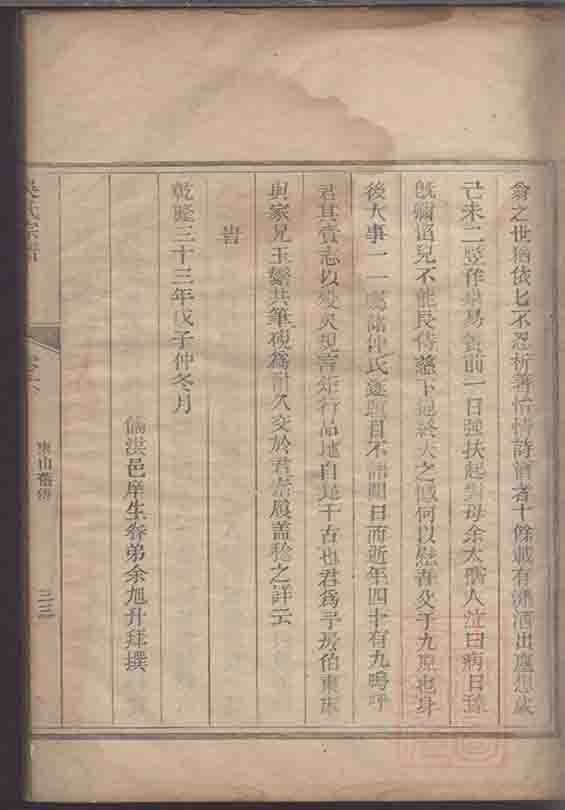 翁之世猶依匕不忍析著怡情詩酒者十餘載有瀟洒出塵想歲
己未二豎作祟易簀前一日強扶起對母余太孺人泣曰病日臻
既彌留兒不能長侍慈下抱終天之憾何以慰吾父于九原也身
後大事一一囑諸仲氏遂瞑目不語閱日而逝年四十有九嗚呼
君其賫志以歿矣規言矩行品地自足千古也君為予房伯東床
與家兄玉
共筆硯為耐久交於君素履盖稔之詳云
旹
乾隆三十三年戊子仲冬月
儒洪邑庠生眷弟余旭升拜撰
吳氏宗譜
東山
三三